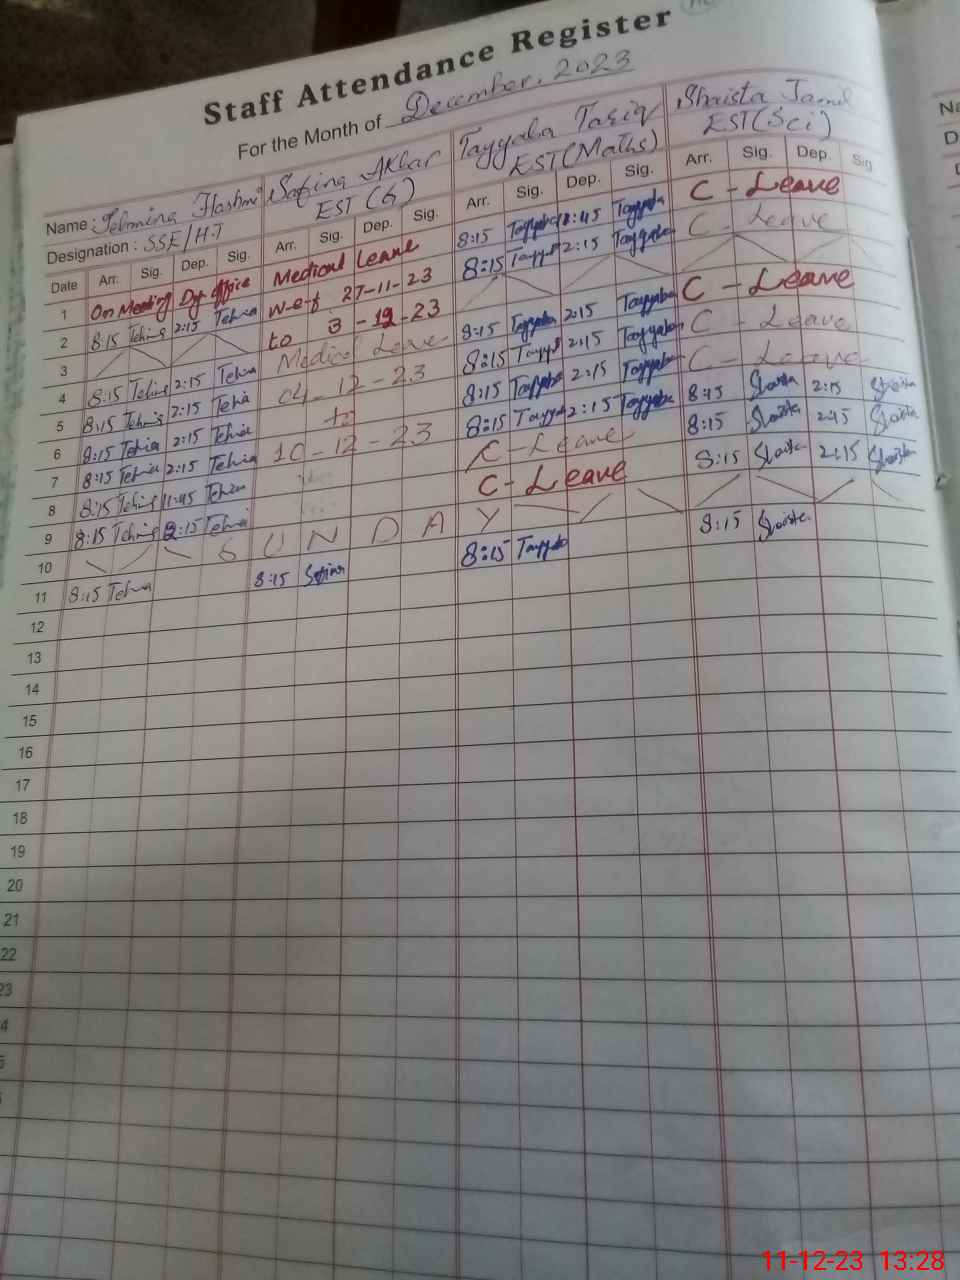 Staff Attendance Register
For the Month of December, 2023
Name : Tehmina Hashmi Safina Akbar Tayyaba Tariq Shaista Jamil
Designation : SSE/H.T EST (G) EST (Maths) EST (Sci)
Date Arr. Sig. Dep. Sig. Arr. Sig. Dep. Sig. Arr. Sig. Dep. Sig. Arr. Sig. Dep. Sig
1 On Meeting Dy. office Medical Leave 8:15 Tayyaba Tayyaba C - Leave
2 8:15 2:15 w-e-f 27-11-23 8:15 2:15 Tayyaba C - Leave
3 to 3 - 12 - 23
4 8:15 2:15 Medical Leave 8:15 Tayyaba 2:15 Tayyaba C - Leave
5 8:15 2:15 04-12-23 8:15 2:15 Tayyaba C - Leave
6 8:15 2:15 to 8:15 Tayyaba 2:15 Tayyaba C - Leave
7 8:15 2:15 10-12-23 8:15 2:15 Tayyaba 8:15 Shaista 2:15 Shaista
8 8:15 11:45 C - Leave 8:15 Shaista Shaista
9 8:15 2:15 C - Leave 8:15 Shaista 2:15 Shaista
10 S U N D A Y
11 8:15 8:15 Safina 8:15 Tayyaba 8:15 Shaista
12
13
14
15
16
17
18
19
20
21
22
23
4
5
11-12-23 13:28